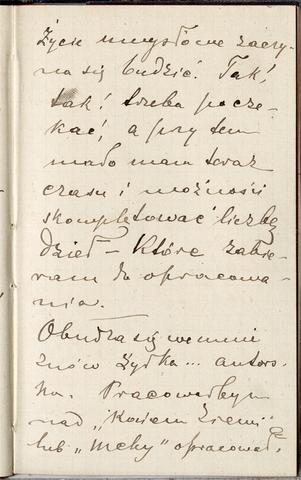 Życie umysłowe zaczy-
na się budzić. Tak!,
tak! trzeba pocze-
kać, a przy tem
mało mam teraz
czasu i możności
skompletować liczbę
dzieł – które zabie-
ram do opracowa-
nia.
Obudza się we mnie
znów żyłka... autors-
ka. Pracowałbym
nad „
lub „ opracował.